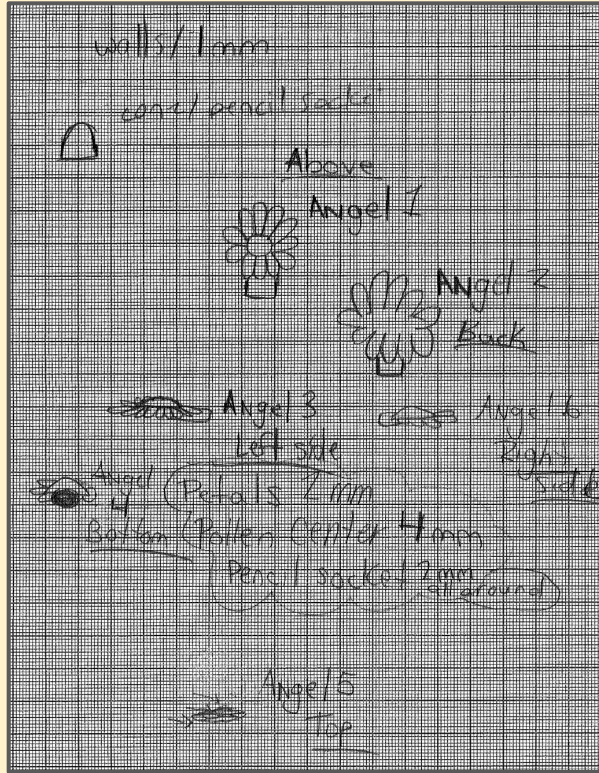 walls/1mm
cone/pencil socket
Above
Angel 1
Angel 2
Back
Angel 3
Left side
Angel 6
Right
side
Angel
4
Bottom
Petals 2mm
Pollen Center 4mm
Pencil socket 2mm
all around
Angel 5
Top